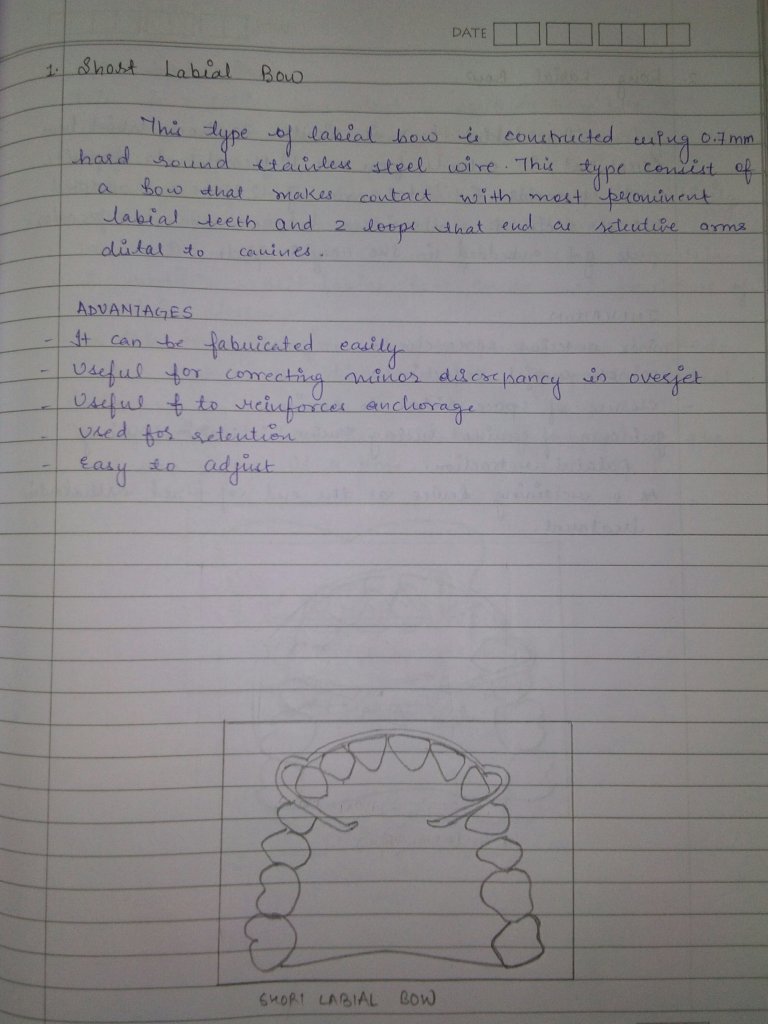 DATE
1. Short Labial Bow
This type of labial bow is constructed using 0.7mm
hard round stainless steel wire. This type consist of
a bow that makes contact with most prominent
labial teeth and 2 loops that end as retentive arms
distal to canines.
ADVANTAGES
- It can be fabricated easily
- Useful for correcting minor discrepancy in overjet
- Useful f to reinforces anchorage
- Used for retention
- Easy to adjust
SHORT LABIAL BOW